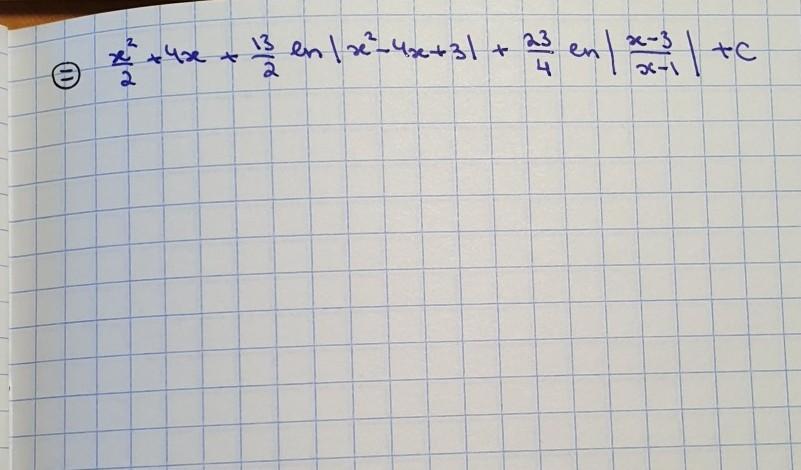 ⊜ x²/2 + 4x + 13/2 ln | x² - 4x + 3 | + 23/4 ln | x-3/x-1 | + C